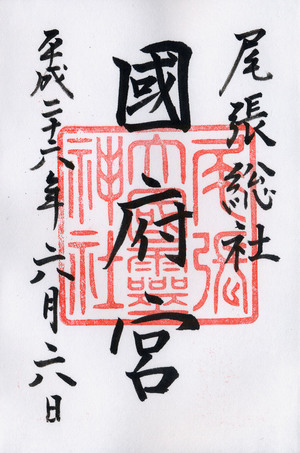 尾張総社
國府宮
平成二十六年六月六日
尾張
大國霊
神社